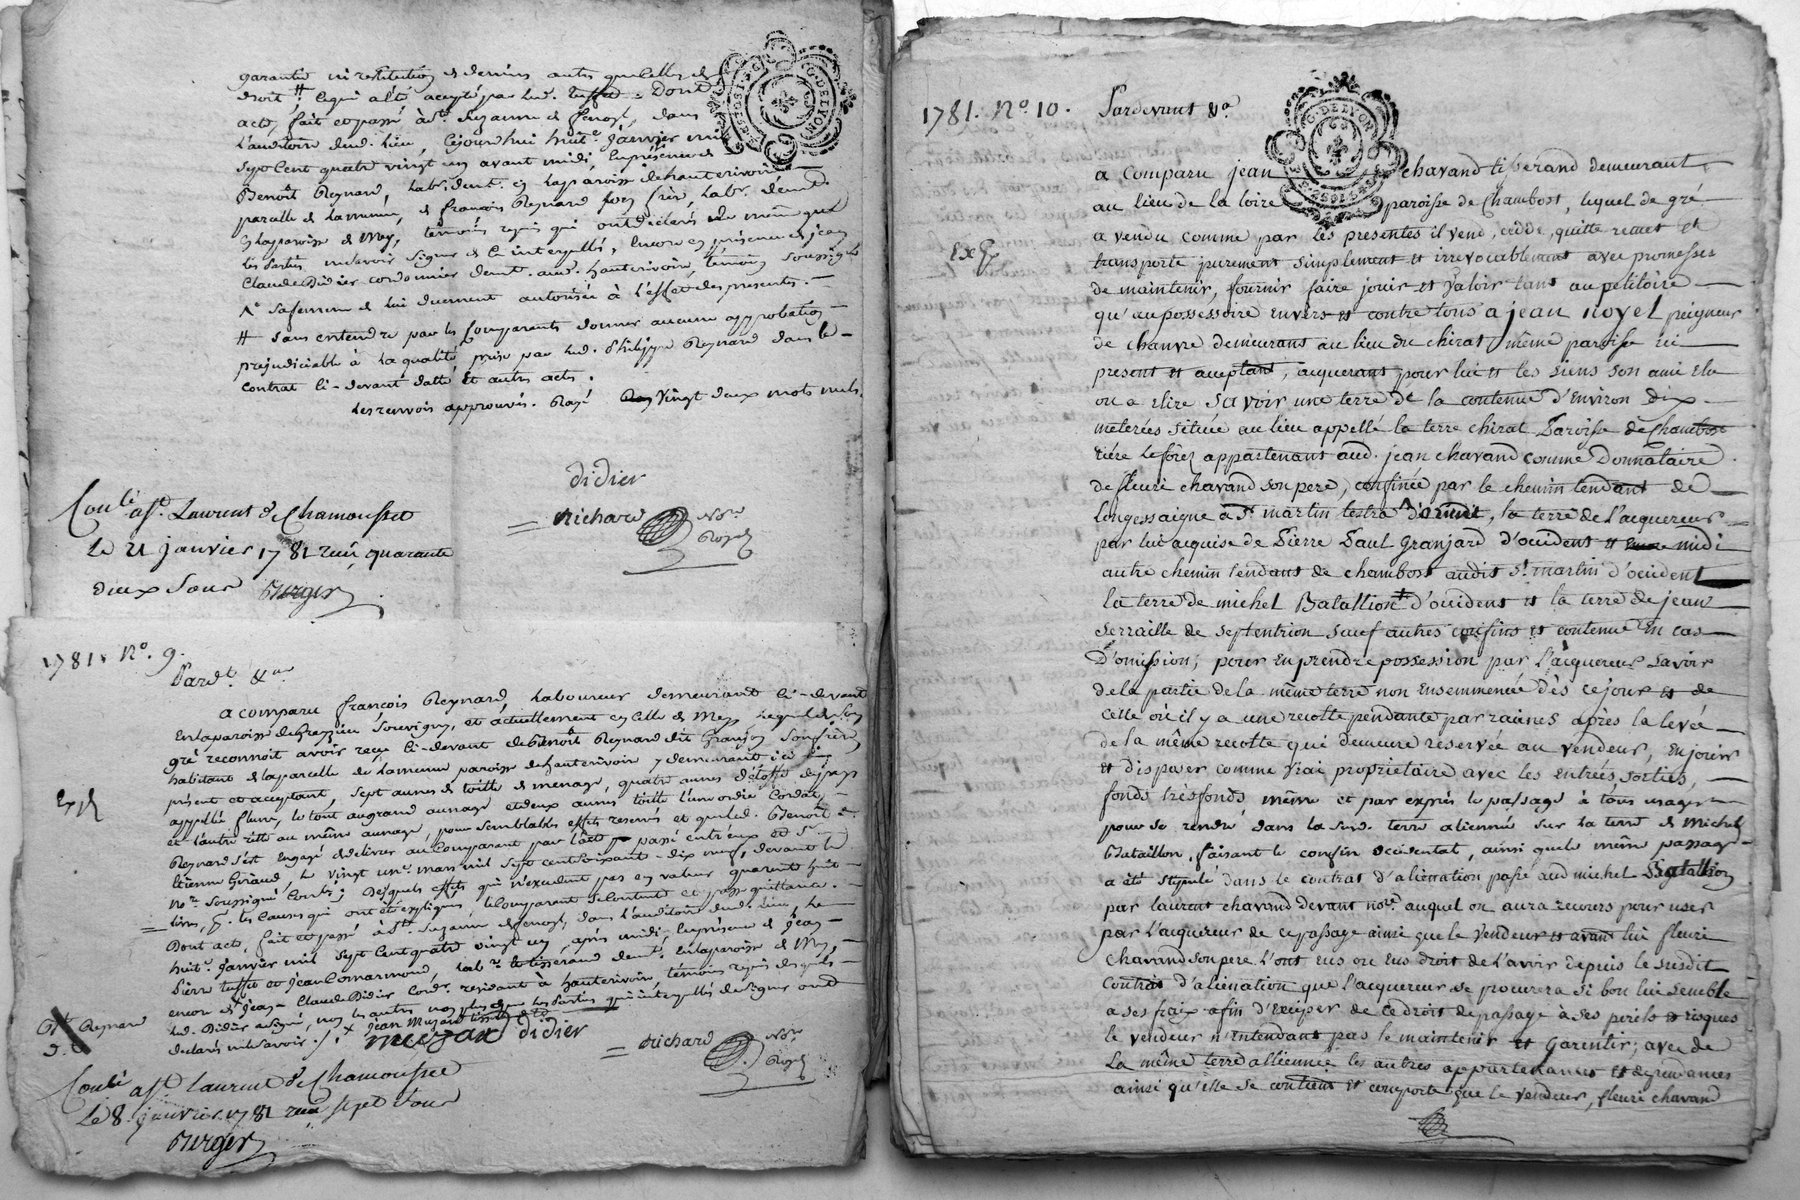 garantie ni restitution de deniers autres que celles de
droit # ce qui a été accepté par led. Tuffet. Dont
acte, fait et passé à Ste Suzanne de fenoyl, dans
l'auditoire dud. lieu, cejourd'hui huite. Janvier mil
sept cent quatre vingt un avant midi, en présence de
Benoît Reynard, labr. demt. en la paroisse de hauterivoire
parcelle de lamure, et françois Reynard son frère, labr. demt.
en la paroisse de Meys, témoins requis qui ont déclaré de même que
les parties ne savoir signer de ce interpellés, encore en présence de jean
Claude Didier cordonnier demt. aud. hauterivoire, témoin soussigné
sa femme de lui duement autorisée à l'effet des presentes. —
# sans entendre par les comparants donner aucune approbation
prejudiciable à la qualité prise par led. Philippe Reynard dans le
contrat ci-devant datté et autres actes.
Les renvois approuvés. Rayé vingt deux mots nuls.
didier
Richard Nore
Royal
Conlé à St. Laurent de Chamousset
Le 21 janvier 1781 reçu quarante
deux sous Burger
1781. No. 9.
Pardt. &a
a comparu françois Reynard, laboureur demeurant ci-devant
en la paroisse de Grezieu Souvigny, et actuellement en celle de Meys lequel de son
gré reconnoit avoir reçu ci-devant de Benoît Reynard dit Granjon son frère
habitant de la parcelle de lamure paroisse de hauterivoire y demeurant ici
présent et acceptant, sept aunes de toille de menage, quatre aunes d'étoffe du pays
appellé flure, le tout au grand aunage et deux aunes toille l'une ordie cordat,
et l'autre ritte au même aunage, pour semblables effets reservés et que led. Benoît
Reynard s'est engagé de délivrer au comparant par l'acte passé entr'eux et Sr.
Etienne Giraud, le vingt un. mars mil sept cent soixante-dix neuf, devant le
nore soussigné Conlé; desquels effets qui n'excedent pas en valeur quarante huit
livres, p. les causes qui ont été expliquées, le comparant se contente et passe quittance.
Dont acte, fait et passé à Ste Suzanne de fenoyl, dans l'auditoire dud. lieu, le
huite. Janvier mil sept cent quatre vingt un, après midi en présence de Jean
Pierre Tuffet et Jean Comarmond, labr. le tisserand demt. en la paroisse de Meys,
encor de Jean-Claude Didier Cordr. residant à hauterivoire, témoins requis desquels
led. Didier a signé, non les autres non plus que les parties qui interpellés de signer ont
déclaré ne le savoir. x jean
didier
Richard Nore
Royal
Exp
Bt Reynard
Conlé à St. Laurent de Chamousset
Le 8 janvier 1781 reçu sept sous
Burger
G. DE LYON
1781. No 10. Pardevant &a
Exp
G. DE LYON
a comparu jean chavand tisserand demeurant
au lieu de la loire paroisse de Chambost, lequel de gré
a vendu comme par les presentes il vend, cedde, quitte remet et
transporte purement simplement et irrevocablement avec promesses
de maintenir, fournir faire jouir et valoir tant au petitoire
qu'au possessoire envers et contre tous a jean noyel peigneur
de chanvre demeurant au lieu du chirat même paroisse ici
present et acceptant, acquerant pour lui et les siens son ami elu
ou a elire Savoir une terre de la contenue d'environ dix
meterées située au lieu appellé la terre chirat Paroisse de Chambost
riére Leforez appartenant aud. jean chavand comme Donnataire
de fleuri chavand son pere, confinée par le chemin tendant de
Longessaigne à St. martin lestra d'orient, la terre de l'acquereur
par lui acquise de Pierre Paul Granjard d'occident et midi
autre chemin tendant de chambost audit St. martin d'occident
la terre de michel Batallion # d'occident et la terre de jean
serraille de septentrion sauf autres confins et contenue en cas
d'omission; pour en prendre possession par l'acquereur savoir
de la partie de la même terre non ensemmencée dès ce jour et de
celle où il y a une recolte pendante par racines après la levé
de la même recolte qui demeure reservée au vendeur, en jouir
et disposer comme vrai proprietaire avec les entrées sorties,
fonds tresfonds même et par exprés le passage à tous usages
pour se rendre dans la susd. terre aliennée sur la terre de Michel
Bataillon, faisant le confin occidental, ainsi que le même passage
a été stipulé dans le contrat d'alienation passé aud michel Batallion
par laurent chavand devant nore. auquel on aura recours pour user
par l'acquereur de ce passage ainsi que le vendeur et avant lui fleuri
chavand son pere l'ont eus ou eus droit de l'avoir depuis le susdit
contrat d'alienation que l'acquereur se procurera si bon lui semble
a ses fraix afin d'exciper de ce droit de passage à ses perils et risques
le vendeur n'entendant pas le maintenir et garentir; avec de
la même terre alliennée les autres appartenances et dependances
ainsi qu'elle se contient et comporte que le vendeur, fleuri chavand